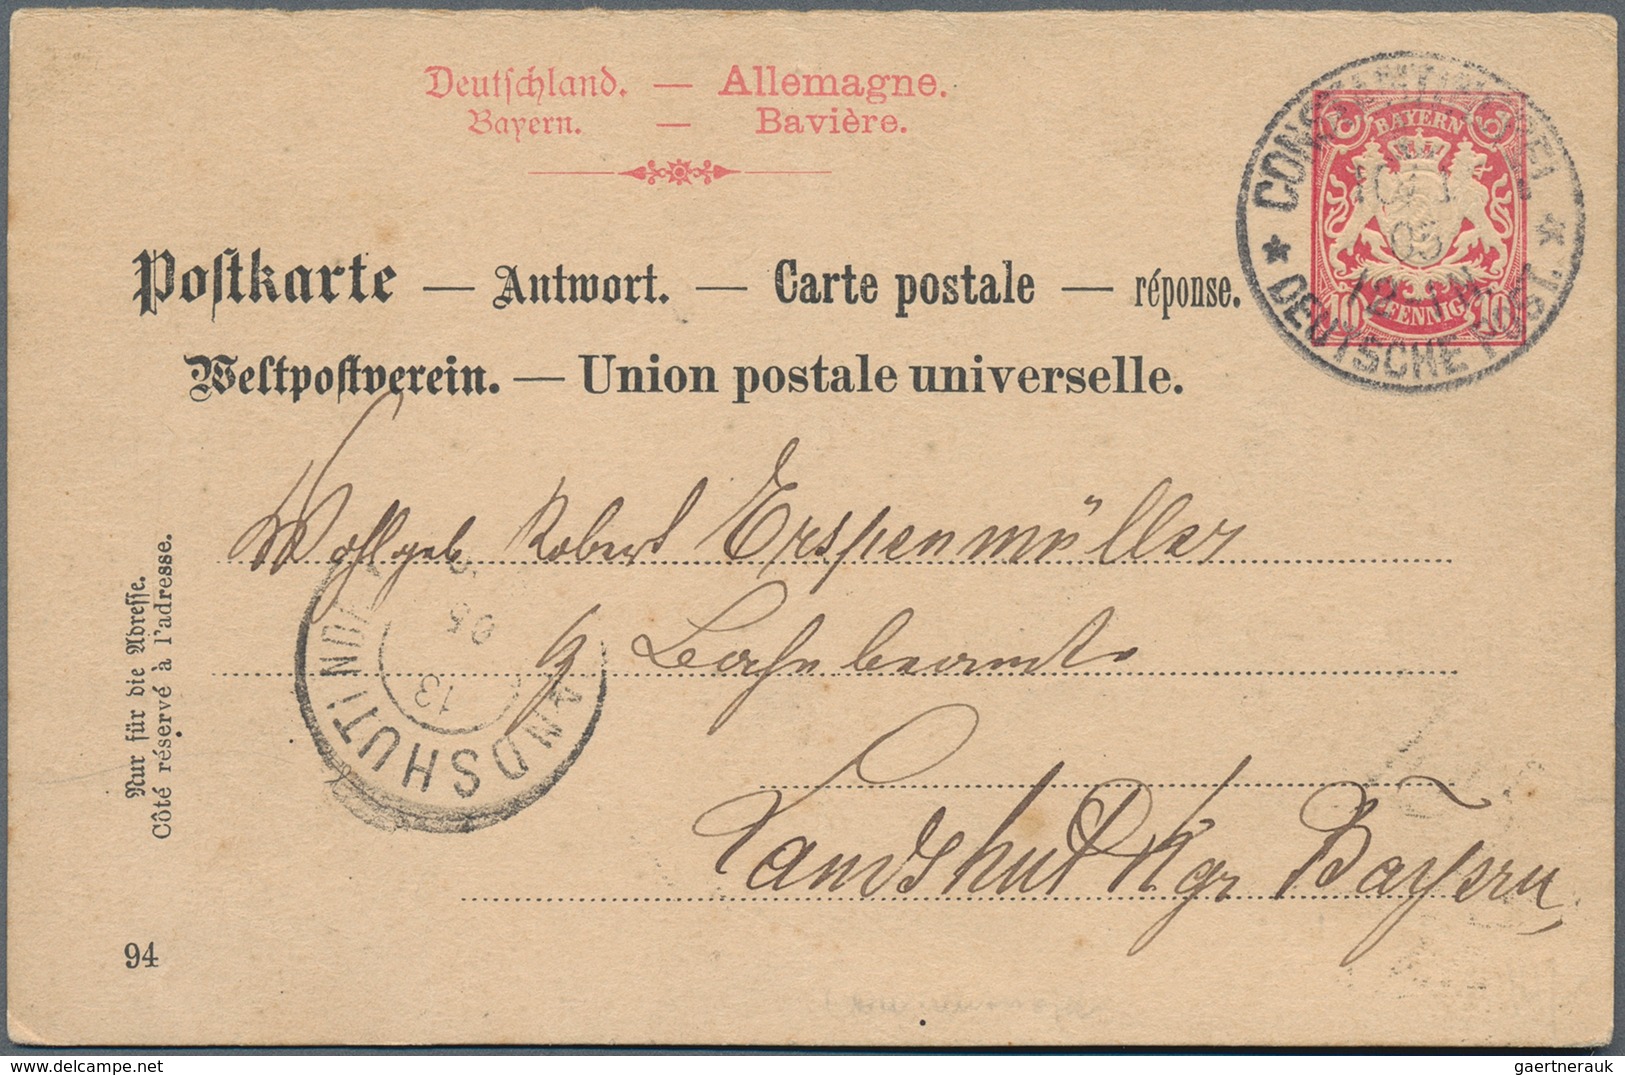 Deutschland. — Allemagne.
Bayern. — Bavière.
BAYERN
10 PFENNIG 10
CONSTANTINOPEL
10/1
95
12-1 N.
* DEUTSCHE POST. *
Postkarte — Antwort. — Carte postale — réponse.
Weltpostverein. — Union postale universelle.
Wohlgeb Robert Erspenmüller
Bahnbeamte
Landshut Kgr Bayern
LANDSHUT I
13
95
Nur für die Adresse.
Côté réservé à l'adresse.
94
gaertnerauk